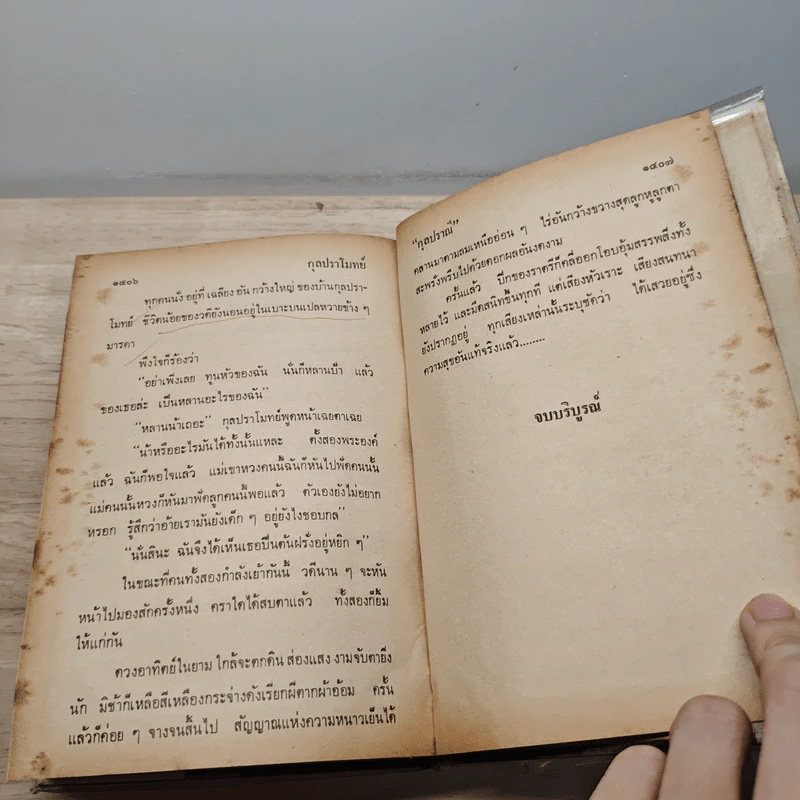 ๑๔๐๖
กุลปราโมทย์
ทุกคนนั่งอยู่ที่ เฉลียง อัน กว้างใหญ่ ของบ้านกุลปรา-
โมทย์ ชีวิตน้อยของวดียังนอนอยู่ในเบาะบนเปลหวายข้าง ๆ
มารดา
พึงใจก็ร้องว่า
“อย่าเพิ่งเลย ทูนหัวของฉัน นั่นก็หลานป้า แล้ว
ของเธอล่ะ เป็นหลานอะไรของฉัน”
“หลานน้าเถอะ” กุลปราโมทย์พูดหน้าเฉยตาเฉย
“น้าหรืออะไรมันได้ทั้งนั้นแหละ ตั้งสองพระองค์
แล้ว ฉันก็พอใจแล้ว แม่เขาหวงคนนี้ฉันก็หันไปพัดคนนั้น
แม่คนนั้นหวงก็หันมาพัดลูกคนนี้พอแล้ว ตัวเองยังไม่อยาก
หรอก รู้สึกว่าอ้ายเรามันยังเด็ก ๆ อยู่ยังไงชอบกล”
“นั่นสินะ ฉันจึงได้เห็นเธอปีนต้นฝรั่งอยู่หยิก ๆ”
ในขณะที่คนทั้งสองกำลังเย้ากันนี้ วดีนาน ๆ จะหัน
หน้าไปมองสักครั้งหนึ่ง คราใดได้สบตาแล้ว ทั้งสองก็ยิ้ม
ให้แก่กัน
ดวงอาทิตย์ในยาม ใกล้จะตกดิน ส่องแสง งามจับตายิ่ง
นัก มิช้าก็เหลือสีเหลืองกระจ่างดังเรียกผีตากผ้าอ้อม ครั้น
แล้วก็ค่อย ๆ จางจนสิ้นไป สัญญาณแห่งความหนาวเย็นได้
๑๔๐๗
“กุลปราณี”
คลานมาตามลมเหนืออ่อน ๆ ไร่อันกว้างขวางสุดลูกหูลูกตา
สะพรั่งพรึบไปด้วยดอกผลอันงดงาม
ครั้นแล้ว ปีกของราตรีก็คลี่ออกโอบอุ้มสรรพสิ่งทั้ง
หลายไว้ และมืดสนิทขึ้นทุกที แต่เสียงหัวเราะ เสียงสนทนา
ยังปรากฏอยู่ ทุกเสียงเหล่านั้นระบุชัดว่า ได้เสวยอยู่ซึ่ง
ความสุขอันแท้จริงแล้ว........
จบบริบูรณ์